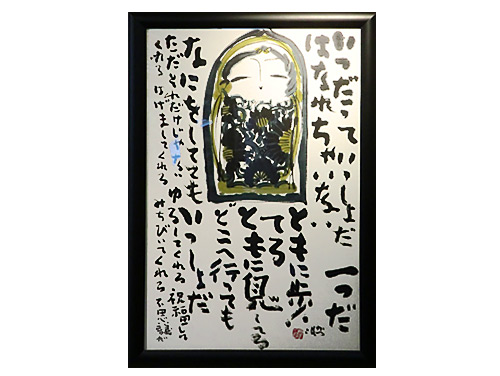 いつだって いっしょだ 一つだ
はなれちゃいない
ともに歩い
てる
ともに見
てる
どこへ行っても
なにをしてても いっしょだ
ただ それだけじゃない ゆるしてくれる 祝福して
くれる はげましてくれる みちびいてくれる 不思議だ